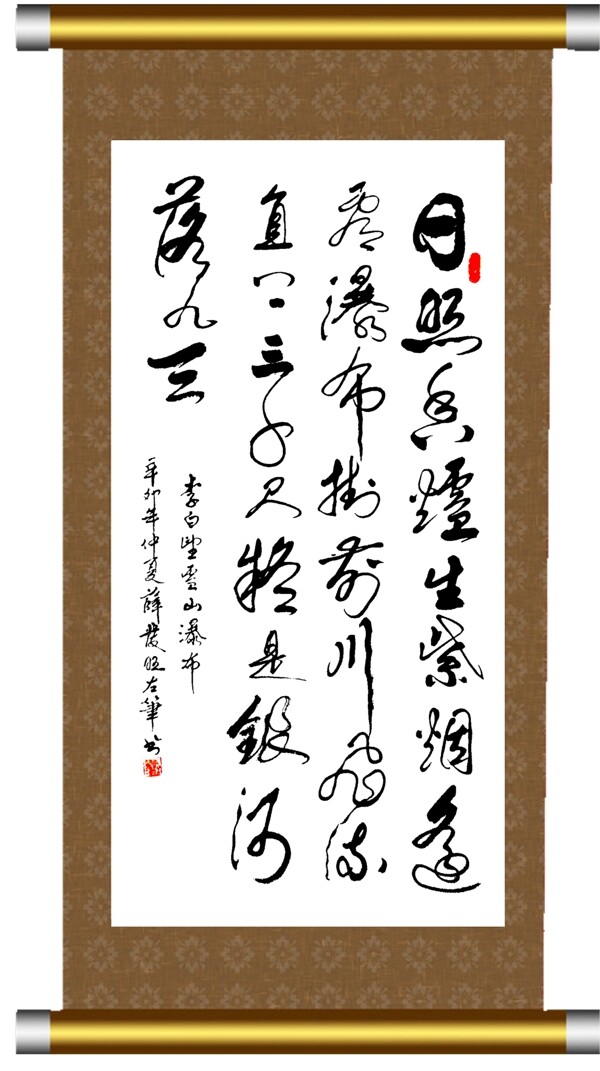 日照香爐生紫烟遙
看瀑布掛前川飛流
直下三千尺疑是銀河
落九天
李白望廬山瀑布
辛卯年仲夏薛發旺左筆书